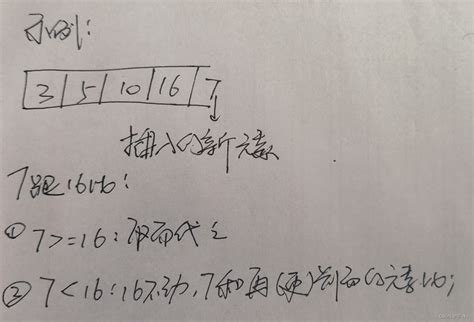 示例:
3 | 5 | 10 | 16 | 7
插入的新元素
7跟16比:
① 7>=16:取而代之
② 7<16:16不动,7和再(更)前面的元素比;